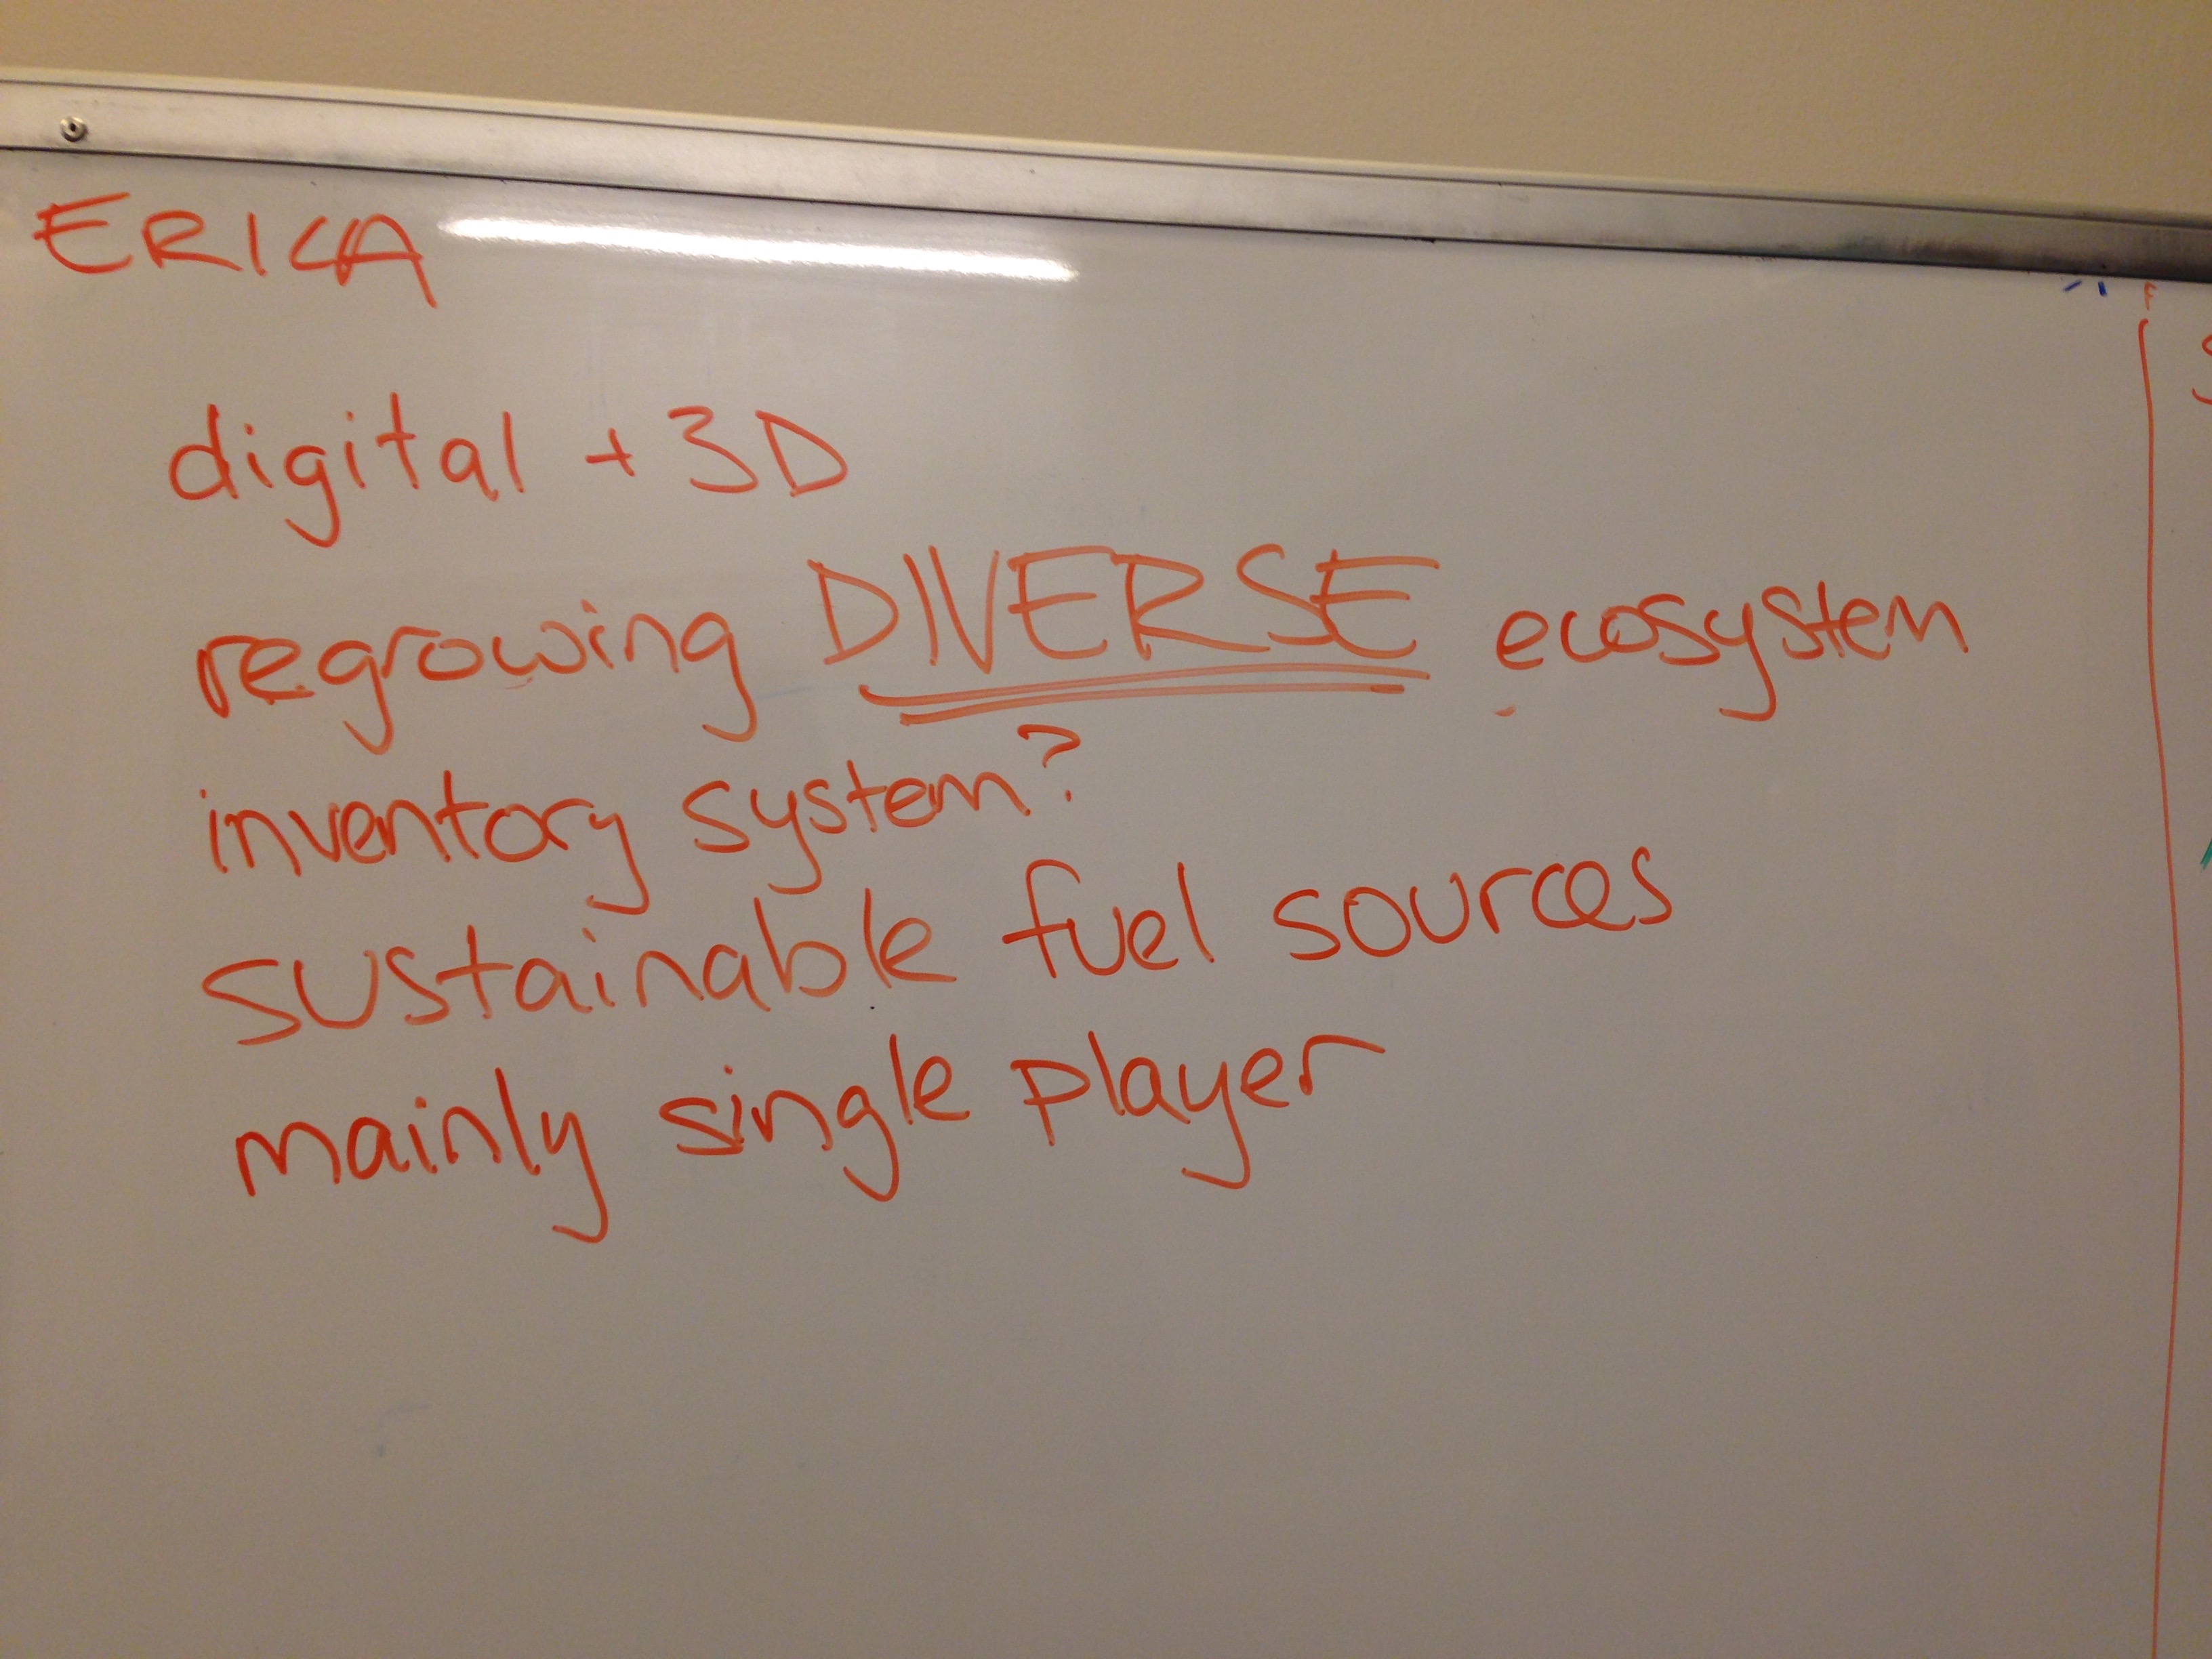 ERICA
digital + 3D
regrowing DIVERSE ecosystem
inventory system?
sustainable fuel sources
mainly single player